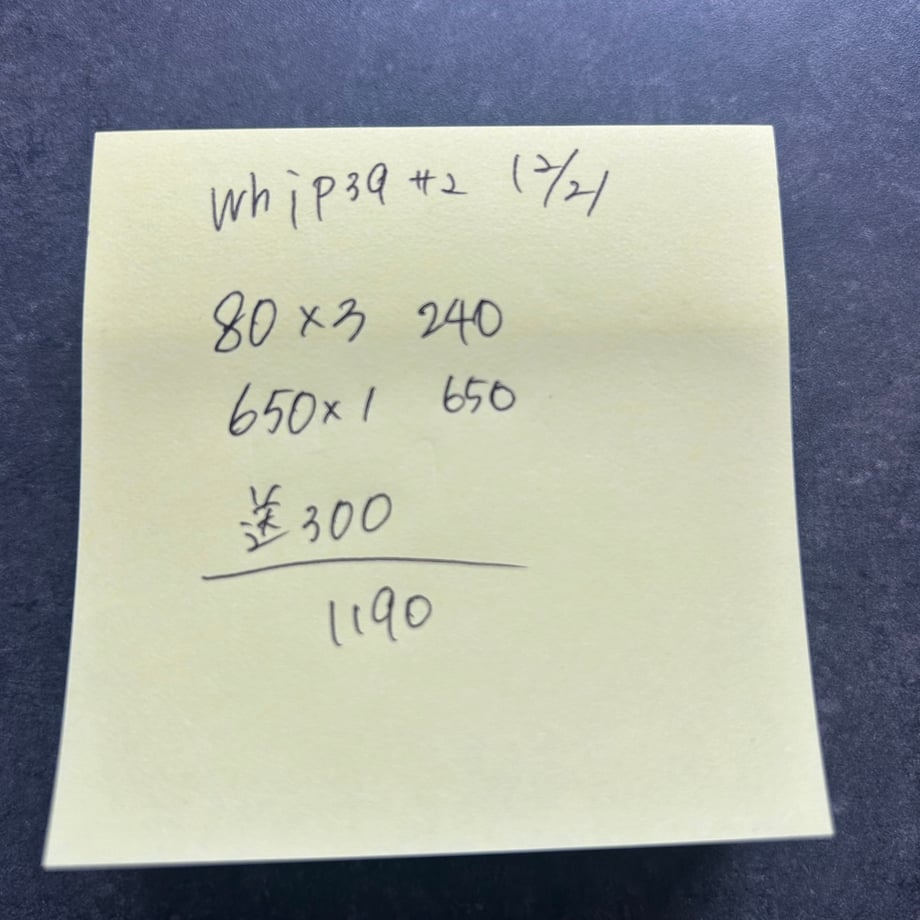 whip39 #2 12/21
80×3 240
650×1 650
送300
1190